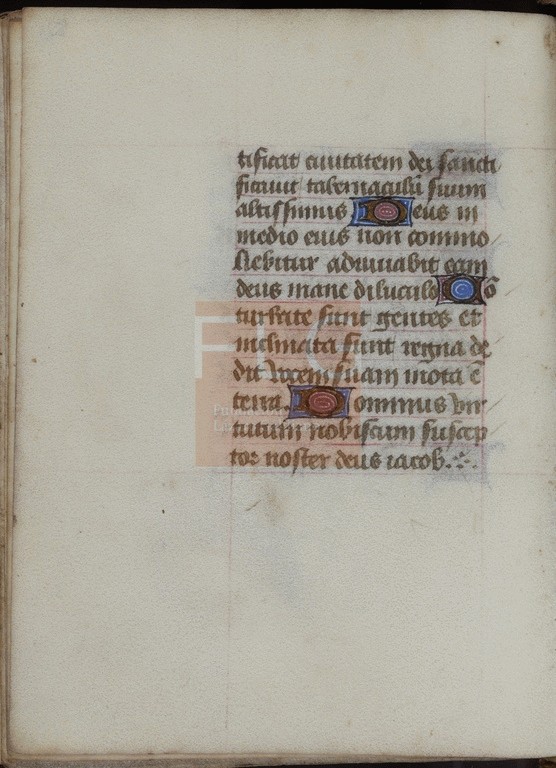 tificat ciuitatem dei sancti
ficauit tabernaculū suum
altissimus Deus in
medio eius non commo
uebitur adiuuabit eam
deus mane diluculo Co
turbate sunt gentes et
inclinata sunt regna de
dit vocem suam mota ē
terra. Dominus vir
tutum nobiscum suscep
tor noster deus iacob.
FLG